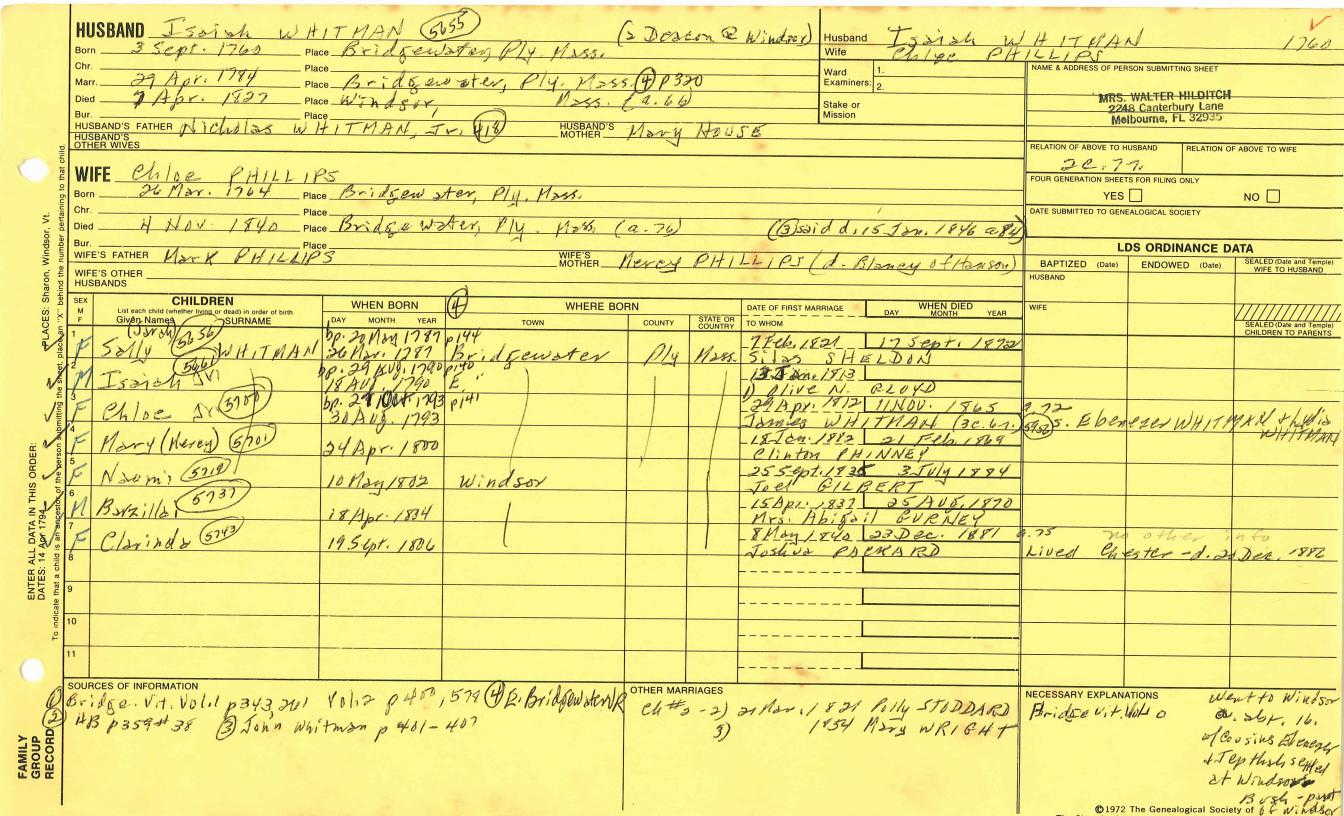 HUSBAND Isaiah WHITMAN 5655 (a Deacon @ Windsor)
Born 3 Sept. 1760 Place Bridgewater, Ply. Mass.
Chr. Place
Marr. 29 Apr. 1784 Place Bridgewater, Ply. Mass. (4) p320
Died 7 Apr. 1827 Place Windsor, Mass. (a. 66)
Bur. Place
HUSBAND'S FATHER Nicholas WHITMAN, Jr. 418 HUSBAND'S MOTHER Mary HOUSE
HUSBAND'S OTHER WIVES
Husband Isaiah WHITMAN 1760
Wife Chloe PHILLIPS
Ward Examiners: 1.
2.
Stake or Mission
NAME & ADDRESS OF PERSON SUBMITTING SHEET
MRS. WALTER HILDITCH
2248 Canterbury Lane
Melbourne, FL 32935
RELATION OF ABOVE TO HUSBAND RELATION OF ABOVE TO WIFE
2C.7r.
FOUR GENERATION SHEETS FOR FILING ONLY
YES NO
DATE SUBMITTED TO GENEALOGICAL SOCIETY
WIFE Chloe PHILLIPS
Born 26 Mar. 1764 Place Bridgewater, Ply. Mass.
Chr. Place
Died 4 Nov. 1840 Place Bridgewater, Ply. Mass. (a. 76) ((3) said d. 15 Jan. 1846 a 84)
Bur. Place
WIFE'S FATHER Mark PHILLIPS WIFE'S MOTHER Mercy PHILLIPS (d. Blaney of Hanson)
WIFE'S OTHER HUSBANDS
LDS ORDINANCE DATA
BAPTIZED (Date) ENDOWED (Date) SEALED (Date and Temple) WIFE TO HUSBAND
HUSBAND
WIFE
SEALED (Date and Temple) CHILDREN TO PARENTS
SEX M F
CHILDREN
List each child (whether living or dead) in order of birth
Given Names SURNAME
WHEN BORN
DAY MONTH YEAR
(4) WHERE BORN
TOWN COUNTY STATE OR COUNTRY
DATE OF FIRST MARRIAGE
TO WHOM
WHEN DIED
DAY MONTH YEAR
1 F (Sarah) Sally 5656 WHITMAN bp. 20 May 1787 p144 7 Feb. 1821 17 Sept. 1872
26 Mar. 1787 Bridgewater Ply Mass. Silas SHELDON
2 M Isaiah Jr. 5661 bp. 29 Aug. 1790 p140 13 June 1813
18 Aug. 1790 E " 1) Olive N. CLOYD
3 F Chloe Jr 5700 bp. 29 Oct. 1793 p141 29 Apr. 1812 11 NOV. 1865 a. 72
30 Aug. 1793 James WHITMAN (3C.6r.) 5950 s. Ebenezer WHITMAN & Lydia WHITMAN
4 F Mary (Mercy) 5701 24 Apr. 1800 18 Jan. 1812 21 Feb. 1869
Clinton PHINNEY
5 F Naomi 5718 10 May 1802 Windsor 25 Sept. 1825 3 July 1884
Joel GILBERT
6 M Barzillai 5737 18 Apr. 1834 15 Apr. 1837 25 AUG. 1870
Mrs. Abigail GURNEY
7 F Clarinda 5743 19 Sept. 1806 8 May 1840 23 Dec. 1881 a. 75 no other info
Joshua PACKARD Lived Chester - d. 20 Dec. 1882
8
9
10
11
SOURCES OF INFORMATION
(1) Bridge. Vit. Vol.1 p343, 201 Vol.2 p400, 579 (4) E. Bridgewater VR
(2) HB p359 #38 (3) John Whitman p 401-407
OTHER MARRIAGES
Ch #2 - 2) 21 Mar. 1821 Polly STODDARD
3) 1854 Mary WRIGHT
NECESSARY EXPLANATIONS
Bridge Vit.
Went to Windsor
a. abt. 16.
of Cousins Ebenezer
+ Jepthah settled
at Windsor
Bush - part
of Windsor
©1972 The Genealogical Society of
ENTER ALL DATA IN THIS ORDER:
DATES: 14 Apr 1794
PLACES: Sharon, Windsor, Vt.
To indicate that a child is an ancestor of the person submitting the sheet, place an "X" behind the number pertaining to that child.
FAMILY
GROUP
RECORD